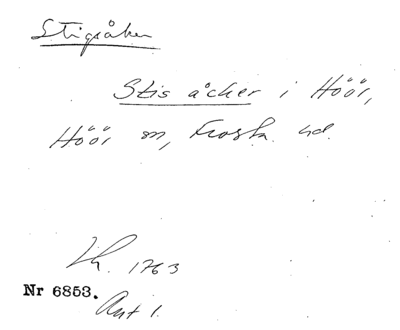 Stigsåker
Stis åcker i Höör,
Höör sn, Frosta hd.
Lh. 1763
Nr 6853.
Akt 1.